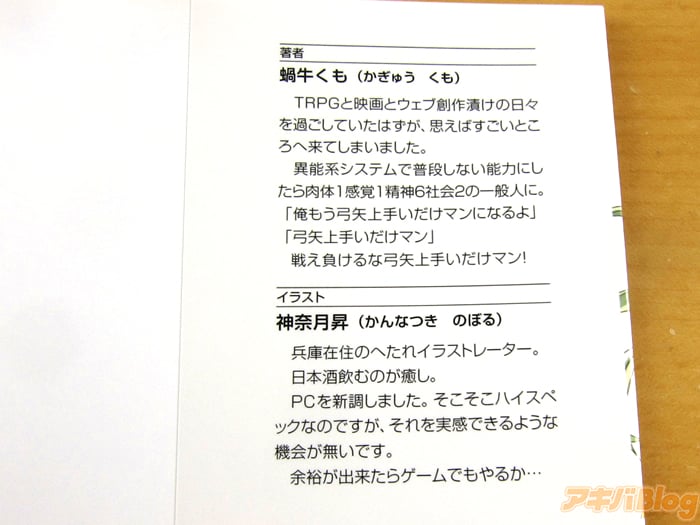 著者
蝸牛くも（かぎゅう　くも）
　TRPGと映画とウェブ創作漬けの日々
を過ごしていたはずが、思えばすごいとこ
ろへ来てしまいました。
　異能系システムで普段しない能力にし
たら肉体1感覚1精神6社会2の一般人に。
「俺もう弓矢上手いだけマンになるよ」
「弓矢上手いだけマン」
　戦え負けるな弓矢上手いだけマン!
イラスト
神奈月昇（かんなつき　のぼる）
　兵庫在住のへたれイラストレーター。
　日本酒飲むのが癒し。
　PCを新調しました。そこそこハイスペ
ックなのですが、それを実感できるような
機会が無いです。
　余裕が出来たらゲームでもやるか…
アキバBlog